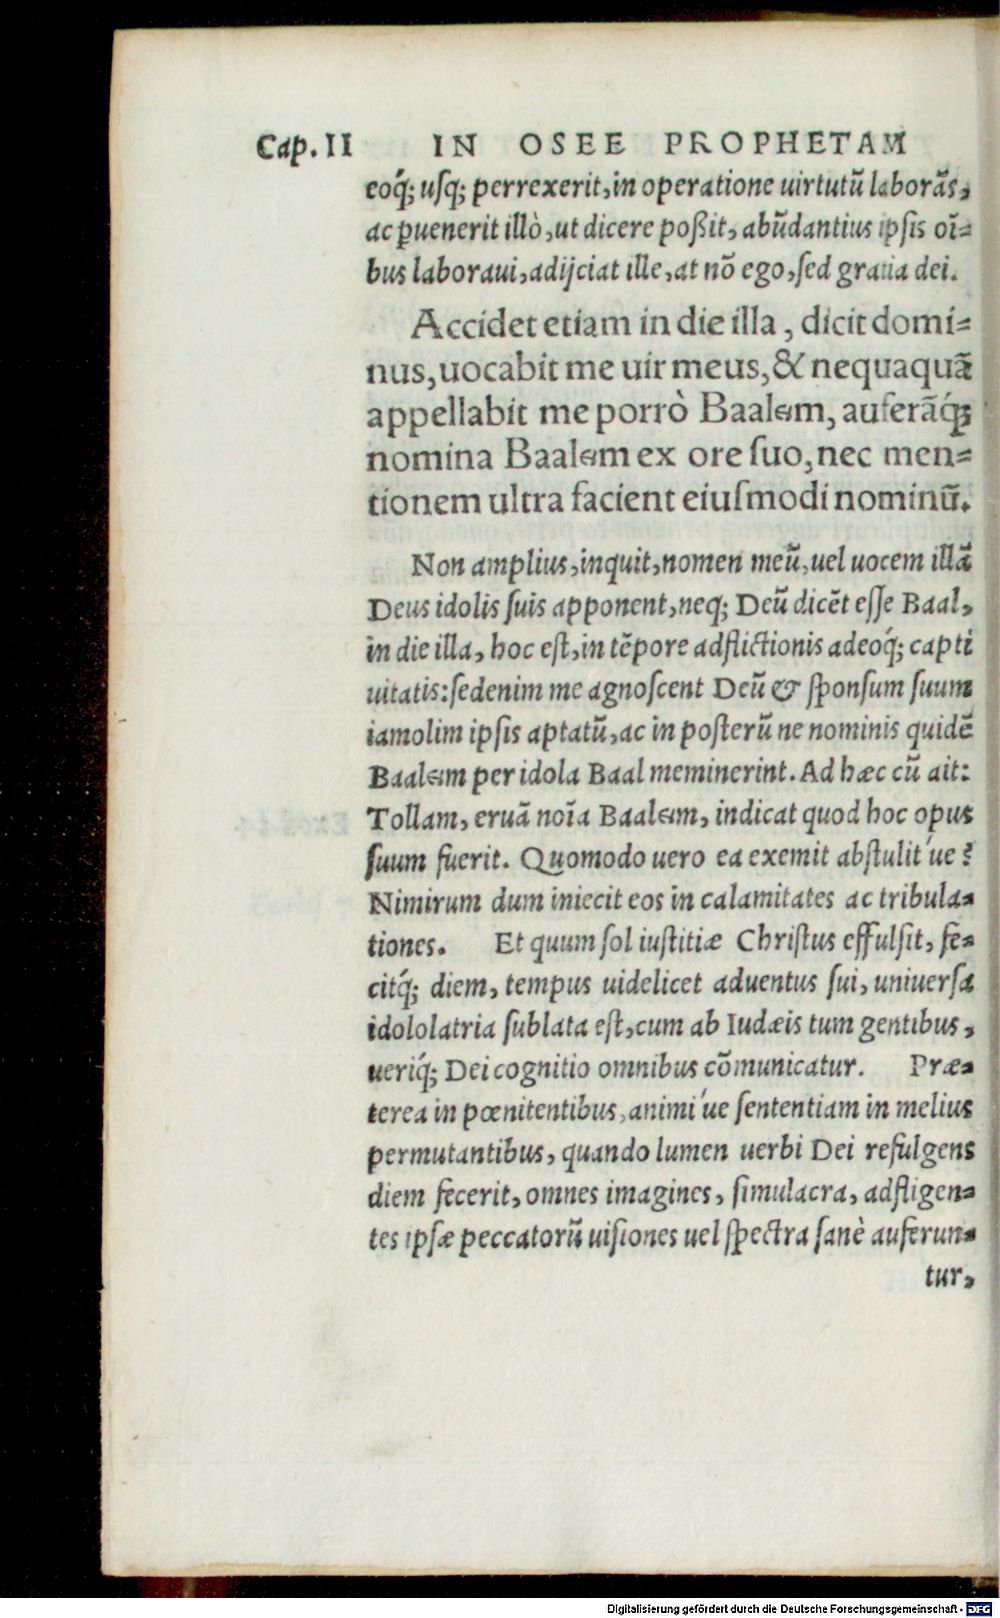 Cap. II IN OSEE PROPHETAM
eoq́; usq; perrexerit, in operatione uirtutũ laborãs,
ac ꝑuenerit illò, ut dicere poßit, abũdantius ipsis oĩ=
bus laboraui, adijciat ille, at nõ ego, sed gratia dei.
Accidet etiam in die illa, dicit domi=
nus, uocabit me uir meus, & nequaquã
appellabit me porrò Baalem, auferãq́;
nomina Baalem ex ore suo, nec men=
tionem ultra facient eiusmodi nominũ.
Non amplius, inquit, nomen meũ, uel uocem illã
Deus idolis suis apponent, neq; Deũ dicẽt esse Baal,
in die illa, hoc est, in tẽpore adflictionis adeoq́; capti
uitatis: sedenim me agnoscent Deũ & sponsum suum
iamolim ipsis aptatũ, ac in posterũ ne nominis quidẽ
Baalem per idola Baal meminerint. Ad hæc cũ ait:
Tollam, eruã noĩa Baalem, indicat quod hoc opus
suum fuerit. Quomodo uero ea exemit abstulit´ue?
Nimirum dum iniecit eos in calamitates ac tribula=
tiones. Et quum sol iustitiæ Christus effulsit, fe=
citq́; diem, tempus uidelicet aduentus sui, uniuersa
idololatria sublata est, cum ab Iudæis tum gentibus,
ueriq́; Dei cognitio omnibus cõmunicatur. Præ=
terea in pœnitentibus, animi´ue sententiam in melius
permutantibus, quando lumen uerbi Dei refulgens
diem fecerit, omnes imagines, simulacra, adfligen=
tes ipsæ peccatorũ uisiones uel spectra sanè auferun=
tur,
Digitalisierung gefördert durch die Deutsche Forschungsgemeinschaft - DFG